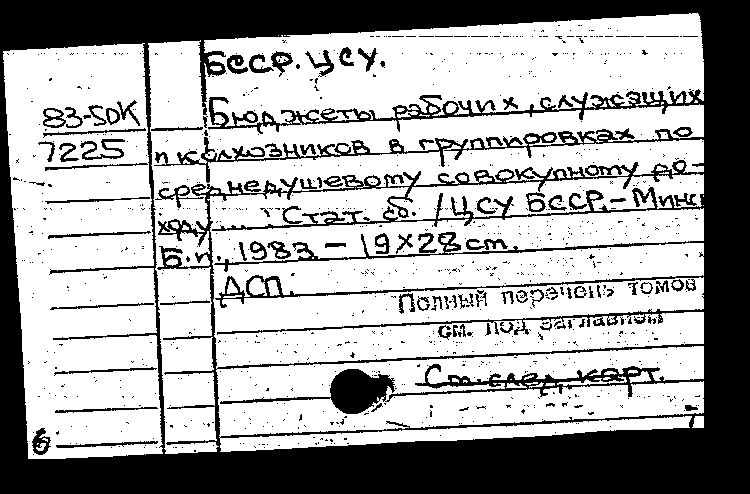 БССР. ЦСУ.
83-5DK
7225
Бюджеты рабочих, служащих
и колхозников в группировках по
среднедушевому совокупному до-
ходу ... : Стат. сб. / ЦСУ БССР. – Минск
Б.и., 1983 – 19×28 cm.
ДСП.
Полный перечень томов
см. под заглавием
См. след. карт.
6
7